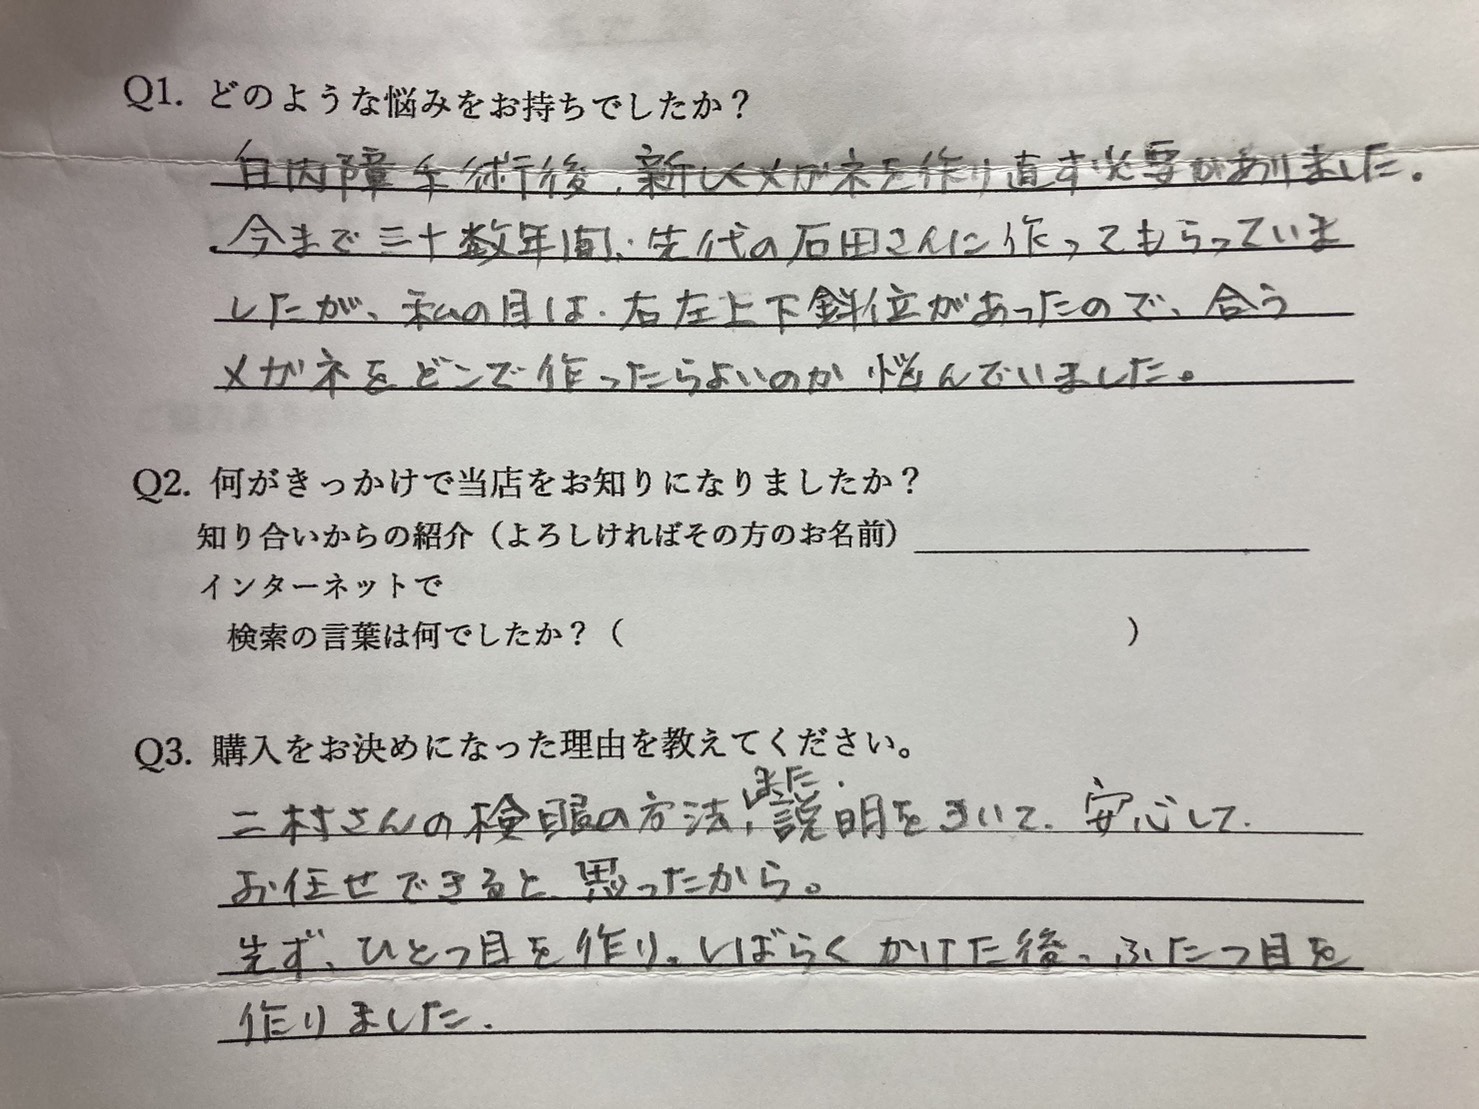 Q1. どのような悩みをお持ちでしたか？
白内障手術後、新しくメガネを作り直す必要がありました。
今まで三十数年間、先代の石田さんに作ってもらっていま
したが、私の目は、右左上下斜位があったので、合う
メガネをどこで作ったらよいのか悩んでいました。
Q2. 何がきっかけで当店をお知りになりましたか？
知り合いからの紹介（よろしければその方のお名前）
インターネットで
検索の言葉は何でしたか？（ ）
Q3. 購入をお決めになった理由を教えてください。
二村さんの検眼の方法、また、説明をきいて、安心して、
お任せできると思ったから。
先ず、ひとつ目を作り。しばらくかけた後、ふたつ目を
作りました。